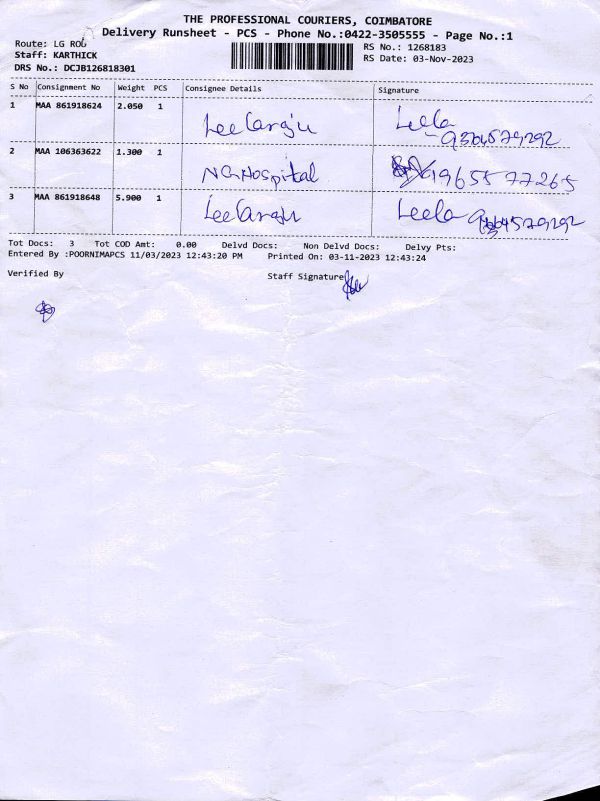 THE PROFESSIONAL COURIERS, COIMBATORE
Delivery Runsheet - PCS - Phone No.:0422-3505555 - Page No.:1
Route: LG ROD
Staff: KARTHICK
DRS No.: DCJB126818301
RS No.: 1268183
RS Date: 03-Nov-2023
S No Consignment No Weight PCS Consignee Details Signature
1 MAA 861918624 2.050 1 Leela
2 MAA 106363622 1.300 1 NG Hospital 9655577265
3 MAA 861918648 5.900 1 Leela
Tot Docs: 3 Tot COD Amt: 0.00 Delvd Docs: Non Delvd Docs: Delvy Pts:
Entered By :POORNIMAPCS 11/03/2023 12:43:20 PM Printed On: 03-11-2023 12:43:24
Verified By Staff Signature